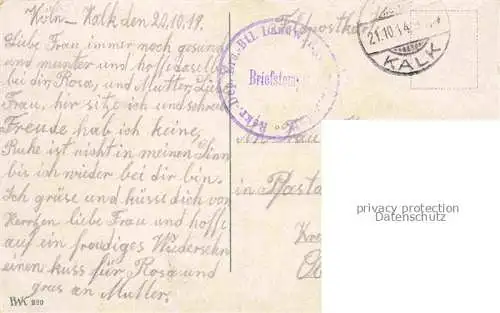 Köln-Kalk den 20.10.19.
Liebe Frau, immer noch gesund
und munter und hoffe dasselbe
bei dir, Rosa, und Mutter, Liebe
Frau, hir sitz ich und schreibe
Freude hab ich keine,
Ruhe ist nicht in meinen Sinn
bis ich wieder bei dir bin.
Ich grüse und küsse dich von
Herrzen liebe Frau und hoffe
auf ein freudiges Wiedersehn
einen kuss für Rosa und
grus an Mutter.
PWK 220
Feldpostkarte
Briefstem
21.10.14
KALK
Frau
in Pfosta
privacy protection
Datenschutz